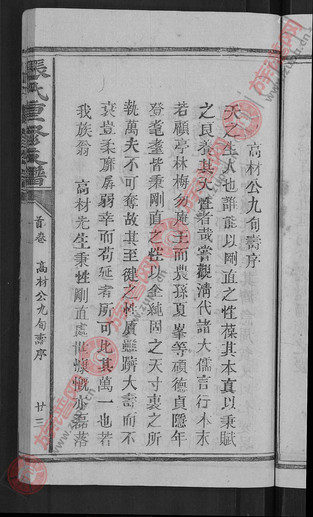 高材公九旬壽序
天之生人也誰能以剛直之性葆其本真以秉賦
之良養其大性者哉嘗觀清代諸大儒言行本末
若顧亭林梅勿庵王而農孫夏峯等碩德貞隱年
登耄耋皆秉剛直之性以全純固之天寸衷之所
執萬夫不可奪故其至健之質雖躋大壽而不
衰豈柔靡孱弱幸而苟延者所可比其萬一也若
我族翁 高材先生秉性剛直處世慷慨亦磊落
張氏重修支譜
首卷 高材公九旬壽序 廿三
族譜網